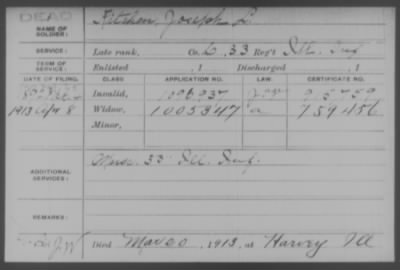 DEAD
NAME OF SOLDIER: Kitchen, Joseph L.
SERVICE: Late rank, Co. C, 33 Reg't Ill. Inf.
TERM OF SERVICE: Enlisted , 1 Discharged , 1
DATE OF FILING. CLASS. APPLICATION NO. LAW. CERTIFICATE NO.
Invalid,
1913 Apr 8 Widow, 1005347 a 759456
Minor,
ADDITIONAL SERVICES: 33 Ill. Inf.
REMARKS:
Died Mar 20, 1913, at Harvey Ill